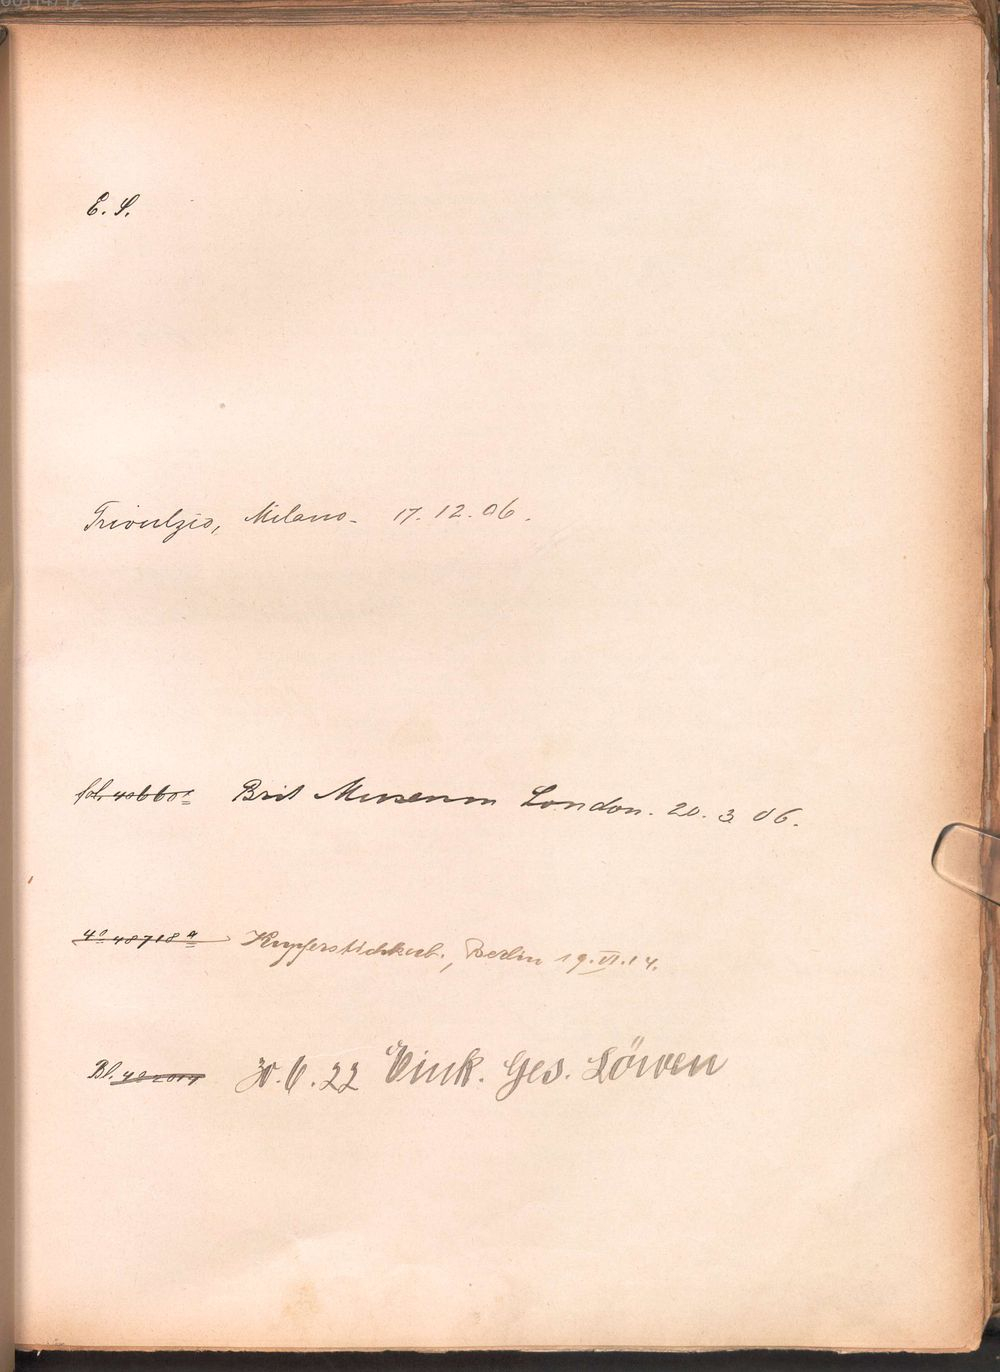 E. S.
Trivulzio, Milano. 17. 12. 06.
fol. 40660ᵃ Brit Museum London. 20. 3. 06.
4° 48718 ᵃ Kupferstichkab., Berlin 19. VI. 14.
Bl. 30. 6. 22 Eink. Ges. Löwen